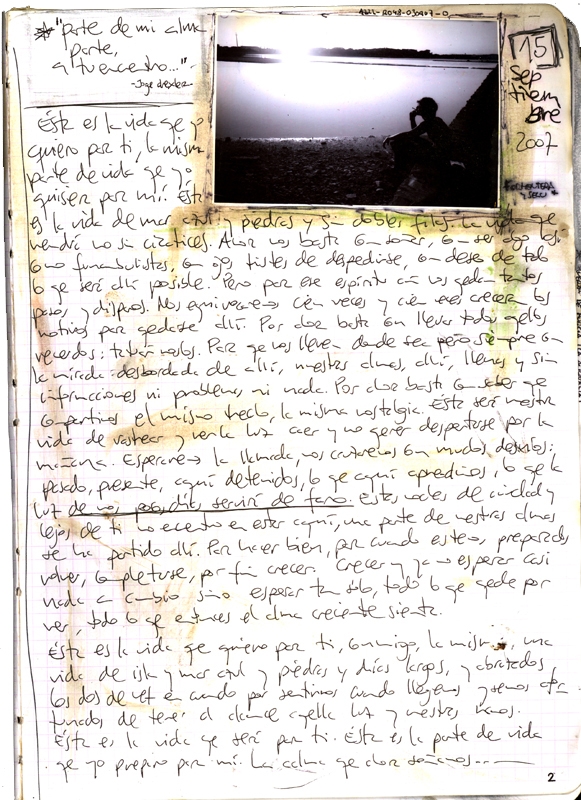 "parte de mi alma
parte,
a tu encuentro..."
- Jorge drexler -
15
Sep
tiem
bre
2007
Formentera
Ésta es la vida qe yo
quiero por ti, la misma
parte de vida qe yo
quiero por mí. Ésta
es la vida de mar azul y piedras y sin dobles filos. La vida qe
vendrá no sin cicatrices. Ahora nos basta con soñar, con ser algo así
como funambulistas, con ojos tristes de despedirse, con deseo de todo
lo qe será allí posible. Pero por ese espíritu aún nos qedan tantos
pasos, y disparos. Nos equivocaremos cien veces y cien veces crecerán los
motivos por qedarse allí. Por ahora basta con llevar todos aqellos
recuerdos: tatuárnoslos. Para qe nos lleven donde sea pero siempre con
la mirada desbordada de allí, nuestras almas, allí, llenas y sin
infracciones ni problemas, ni nada. Por ahora basta con saber qe
compartimos el mismo hecho, la misma nostalgia. Ésta será nuestra
vida de rastrear y ver la luz caer y no qerer despertarse por la
mañana. Esperaremos la llamada, nos cruzaremos con mundos desiertos:
pasado, presente, aquí detenidos, lo qe aquí aprendimos, lo qe la
luz de nos servirá de faro. Estas noches de ciudad y
lejos de ti lo acento en estar aquí, una parte de nuestras almas
se ha partido allí. Por hacer bien, por cuando estemos preparados
volver, completarse, por fin crecer. Crecer y ya no esperar casi
nada a cambio sino esperar tan sólo, todo lo qe qede por
ver, todo lo qe entonces el alma creciente sienta.
Ésta es la vida qe quiero por ti, conmigo, la misma, una
vida de isla y mar azul y piedras y días largos, y abrazados
los dos de vez en cuando por sentirnos cuando lleguemos y seamos afor-
tunados de tener al alcance aqella luz y nuestras manos.
Ésta es la vida qe será por ti. Ésta es la parte de vida
qe yo preparo por mí. La calma qe ahora soñamos...
2